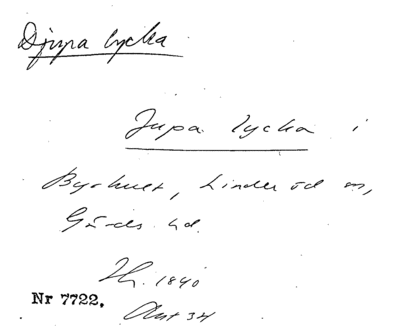 Djupa lycka
Jupa lycka i
Byahult, Linderöd sn,
Gärds hd.
1840
Nr 7722. Akt 34